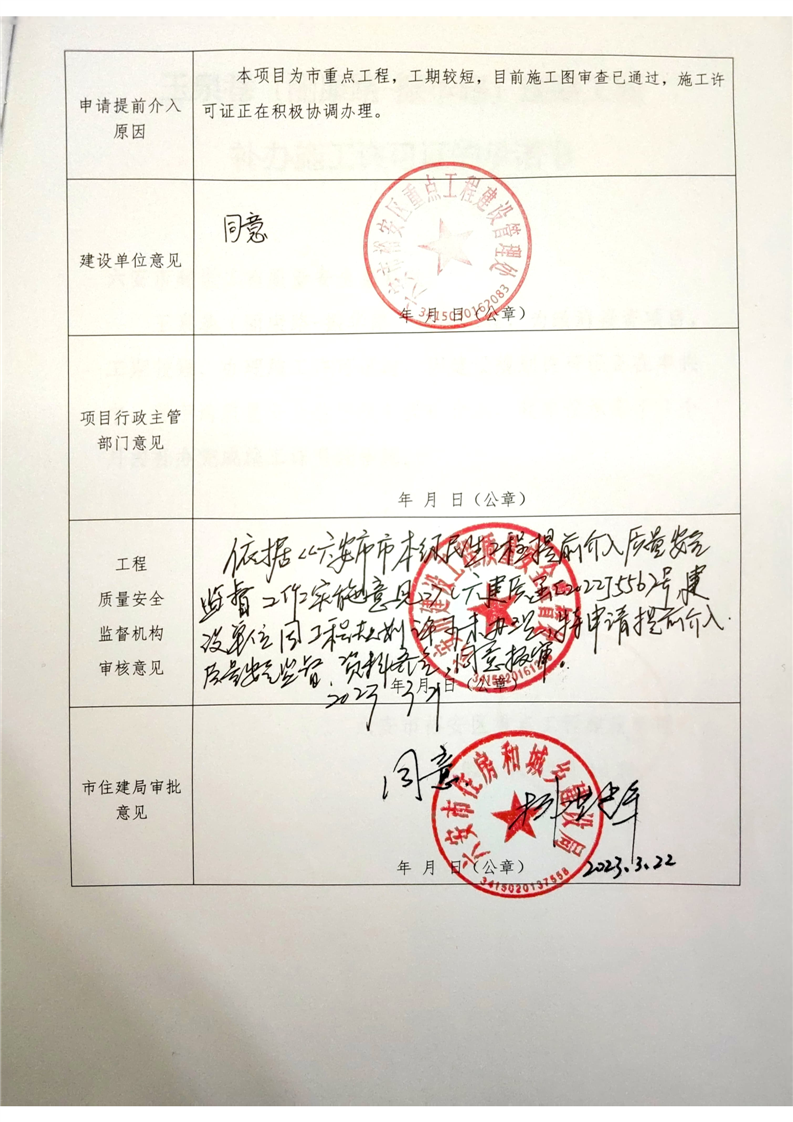 申请提前介入
原因
本项目为市重点工程，工期较短，目前施工图审查已通过，施工许
可证正在积极协调办理。
建设单位意见
同意
六安市裕安区重点工程建设管理处
3415020162083
年 月 日（公章）
项目行政主管
部门意见
年 月 日（公章）
工程
质量安全
监督机构
审核意见
依据《六安市市本级民生工程提前介入质量安全
监督工作实施意见》（六建质安〔2022〕556号，建
设单位因工程规划许可未办理，特申请提前介入
质量安全监督，资料齐全，同意报审。
年 月 日（公章）
2023 3 21
市住建局审批
意见
同意
六安市住房和城乡建设局
3415020137558
年 月 日（公章）
2023.3.22